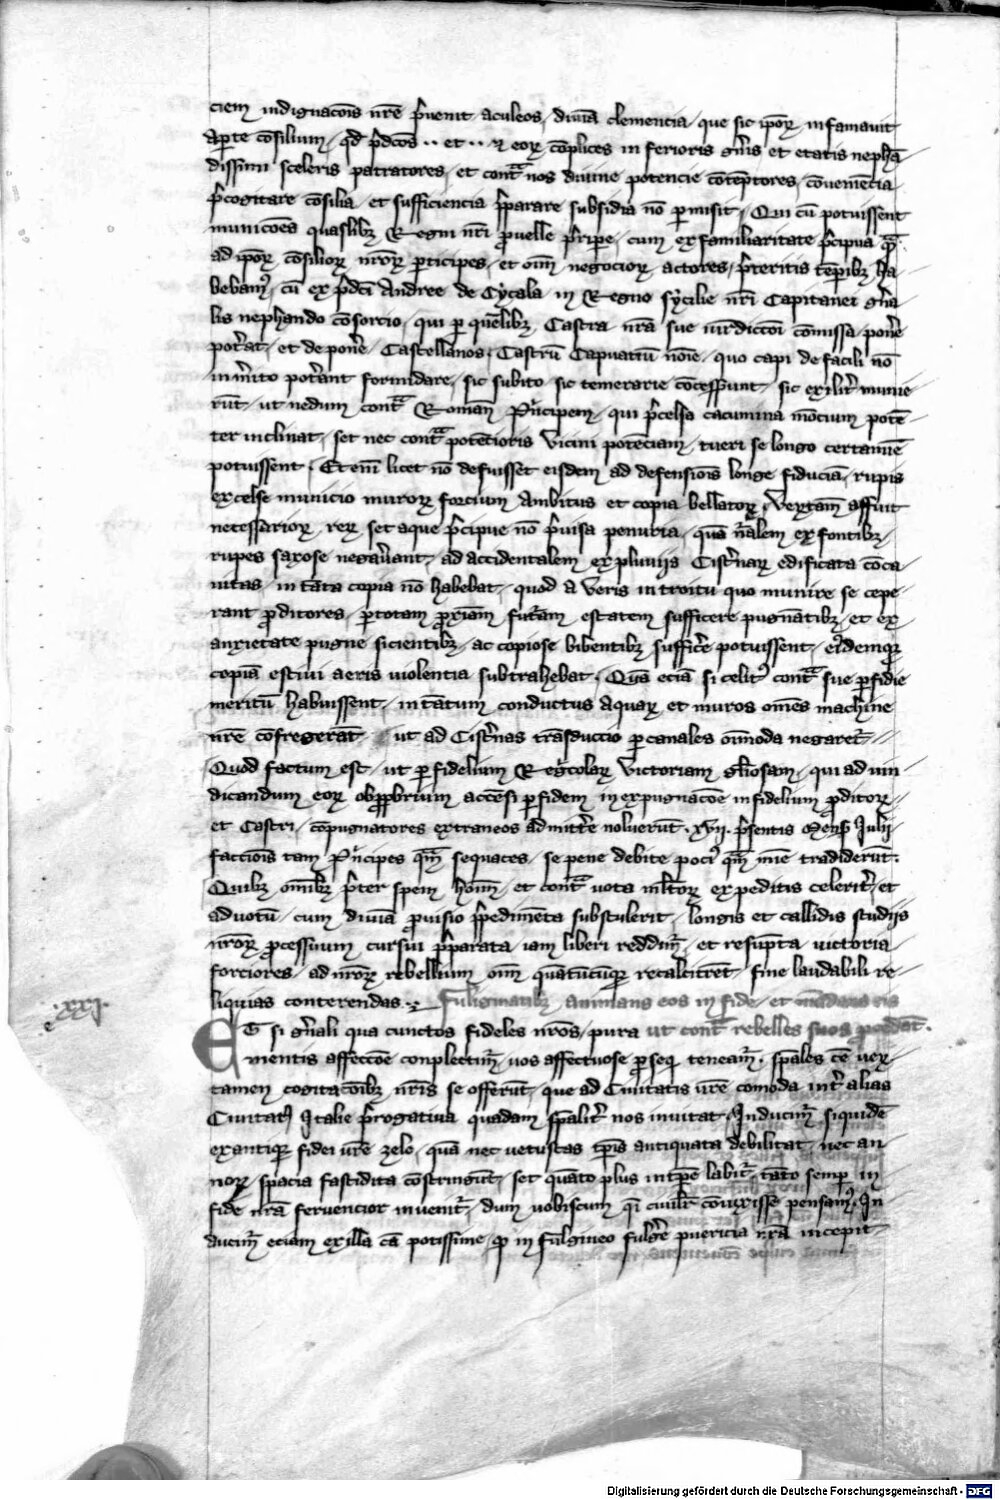 ciem indignacōis nr̄e p̄uenit aculeos, diuīa clemencia, que sic ip̄oꝝ infamauit
ap̄te cōsilium, qd̄ p̄dcōs ·· et ·· ⁊ eoꝝ cōplices inferioris gn̄is et etatis nephā
dissimi sceleris patratores, et contᵃ nos diuine potencie cōtēptores, cōueniēcia
p̄cogitare cōsilia et sufficiencia p̄parare subsidia nō permisit, Qui cū potuissent
municōes quaslibꝫ Regni nr̄i reuelle p̄ripe, cum ex familiaritate p̄cipua
ad ip̄oꝝ cōsilioꝝ nr̄oꝝ ꝑticipes, et oīm negocioꝝ actores, p̄teritis tēpibꝫ ha
bebamꝰ, cū ex p̄dcī Andree de Cycala in Regno sycilie nr̄i Capitanei gn̄a
lis nephando cōsorcio, qui ꝑ quēlibꝫ Castra nr̄a sue iurdictōi cōmissa pone
pot̄at, et depone, Castellanos, Castrū Capuatiū nōie, quo capi de facili nō
inm̄ito pot̄ant formidare, sic subito, sic temerarie cōcesserunt, sic exilit̄ munie
rūt, ut nedum contᵃ Romān Pⁱncipem, qui p̄celsa cacumina mōcium potē
ter inclinat, set nec contᵃ potēcioris vicini potēciam, tueri se longo certamīe
potuissent, Et enī licet nō defuisset eisdem ad defensiōis longe fiduciā, rupis
excelse municio muroꝝ forcium ambitus et copia bellatoꝝ, Veꝝtām affuit
necessarioꝝ reꝝ set aque p̄cipue nō p̄uisa penuria, quā n̄alem ex fontibꝫ
rupes saxose negau̅ant, ad accidentalem ex pluuijs Cist̄naꝝ edificata cōca
uitas, in tāta copia nō habebat, quod a veris introitu quo munire se cepe
rant ꝓditores, ꝑ totam ꝓximā futām estatem sufficere pugnātibꝫ, et ex
anxietate pugne sicientibꝫ, ac copiose bibentibꝫ suffic̄e potuissent, eīdemqꝫ
copiā estiui aeris uiolentia subtrahebat, Quā eciā si celit̄ contᵃ sue ꝑfidie
meritū habuissent, in tātum conductus aquaꝝ et muros oīes machine
nr̄e cōfregerāt ut ad Cist̄nas trāsduccio ꝑ canales oīmoda negaret̄
Quod factum est, ut ꝑ fidelium Regcolaꝝ victoriam gl̄iosam, qui ad uin
dicandum eoꝝ obꝓbrium accēsi ꝑfidem in expugnacōe infidelium ꝓditoꝝ
et Castri, cōpugnatores extraneos admitt̄e noluerūt, xvij. p̄sentis mens̄ Julij
facciōis tam Pⁱncipes qᵃm sequaces, se pene debite pociꝰ qᵃm mīe tradiderūt.
Quibꝫ oīmibꝫ p̄ter spem hoīm, et contᵃ uota ml̄toꝝ expeditis celerit̄, et
ad uotū, cum diuīa ꝓuisio p̄pedimēta substulerit, longis et callidis studijs
nr̄oꝝ ꝓcessuum cursui p̄parata iam liberi reddim̄, et resūpta uictoria
forciores, ad nr̄oꝝ rebellium oīm quātūcūqꝫ recalcitrēt, fine laudabili re
liquias conterendas. Fulginatibꝫ, animans eos in fide, et mādans eis
.xxi.
ET si gn̄ali qua cunctos fideles nr̄os, pura ut contᵃ rebelles suos ꝓcedāt.
mentis affeccōe complectim̄, uos affectuose ꝓseqi teneam̄. spāles tn̄ ueꝝ
tamen cogitacōibꝫ nr̄is se offerūt, que ad Ciuitatis ur̄e comoda int̄ alias
Ciuitates Italie p̄rogatiua quadam spālit̄ nos inuitat, Inducim̄ siquidē
ex antiqꝫ fidei ur̄e zelo, quā nec uetustas tp̄is antiquata debilitat, nec an
noꝝ spacia fastidita cōstringūt, set quāto plus intp̄e labit̄, tāto semꝑ in
fide nr̄a feruencior inuenit̄, dum uobiscum qⁱ ciuilit̄ conuixisse pensamꝰ. In
ducim̄ eciam ex illa cā potissime, ꝙ in Fulgineo fulḡe puericia nr̄a incepit
Digitalisierung gefördert durch die Deutsche Forschungsgemeinschaft - DFG